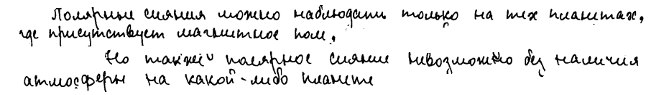 Полярные сияния можно наблюдать только на тех планетах,
где присутствует магнитное поле.
Но также полярное сияние невозможно без наличия
атмосферы на какой-либо планете